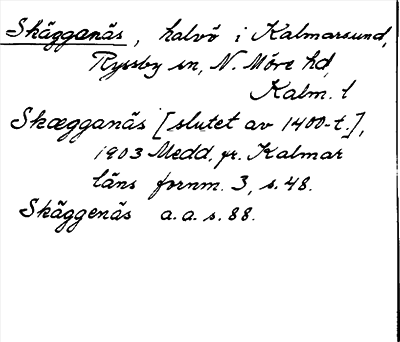 Skägganäs, halvö i Kalmarsund,
Ryssby sn, N. Möre hd,
Kalm. l
Skægganäs [slutet av 1400-t.],
1903 Medd. fr. Kalmar
läns fornm. 3, s. 48.
Skäggenäs a.a. s. 88.